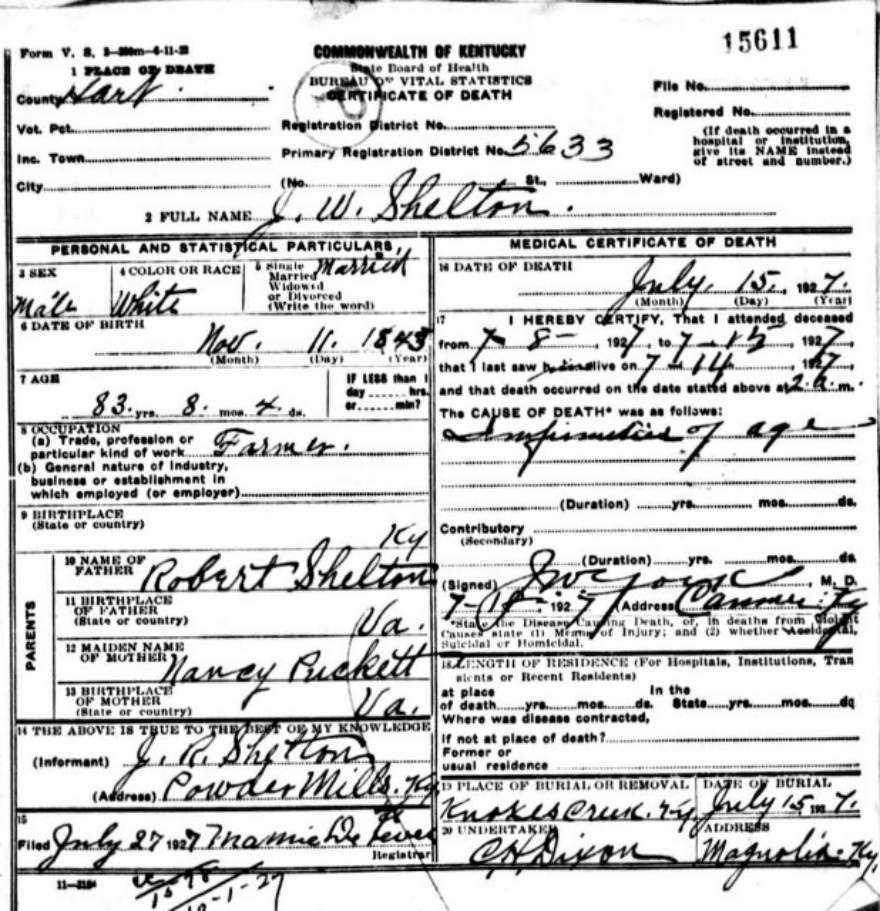 15611
Form V. S. 3-300m-4-11-22
COMMONWEALTH OF KENTUCKY
State Board of Health
BUREAU OF VITAL STATISTICS
CERTIFICATE OF DEATH
1 PLACE OF DEATH
County Hart
Vot. Pct.
Inc. Town
City
Registration District No.
Primary Registration District No. 5633
(No. St., Ward)
File No.
Registered No.
(If death occurred in a
hospital or institution,
give its NAME instead
of street and number.)
2 FULL NAME J. W. Shelton.
PERSONAL AND STATISTICAL PARTICULARS
3 SEX
Male
4 COLOR OR RACE
White
5 Single
Married
Widowed
or Divorced
(Write the word)
Married
6 DATE OF BIRTH
Nov. 11. 1843
(Month) (Day) (Year)
7 AGE
83 yrs. 8 mos. 4 ds.
IF LESS than 1
day hrs.
or min?
8 OCCUPATION
(a) Trade, profession or
particular kind of work Farmer.
(b) General nature of industry,
business or establishment in
which employed (or employer)
9 BIRTHPLACE
(State or country)
Ky
PARENTS
10 NAME OF
FATHER Robert Shelton
11 BIRTHPLACE
OF FATHER
(State or country) Va.
12 MAIDEN NAME
OF MOTHER Nancy Puckett
13 BIRTHPLACE
OF MOTHER
(State or country) Va.
14 THE ABOVE IS TRUE TO THE BEST OF MY KNOWLEDGE
(Informant) J. R. Shelton
(Address) Powder Mills. Ky
15
Filed July 27 1927 Mamie
Registrar
11-3184
MEDICAL CERTIFICATE OF DEATH
16 DATE OF DEATH
July. 15., 1927.
(Month) (Day) (Year)
17 I HEREBY CERTIFY, That I attended deceased
from 7-8-, 1927, to 7-15, 1927
that I last saw him alive on 7-14, 1927
and that death occurred on the date stated above at 2 a. m.
The CAUSE OF DEATH* was as follows:
Infirmities of age
(Duration) yrs. mos. ds.
Contributory
(Secondary)
(Duration) yrs. mos. ds.
(Signed) , M. D.
, 1927 (Address) Canmer. Ky
*State the Disease Causing Death, or, in deaths from Violent
Causes state (1) Means of Injury; and (2) whether Accidental,
Suicidal or Homicidal.
18 LENGTH OF RESIDENCE (For Hospitals, Institutions, Tran
sients or Recent Residents)
at place In the
of death yrs. mos. ds. State yrs. mos. ds
Where was disease contracted,
if not at place of death?
Former or
usual residence
19 PLACE OF BURIAL OR REMOVAL
Knokes Creek. Ky
DATE OF BURIAL
July 15, 1927.
20 UNDERTAKER
C. H. Dixon
ADDRESS
Magnolia. Ky.
10-1-27